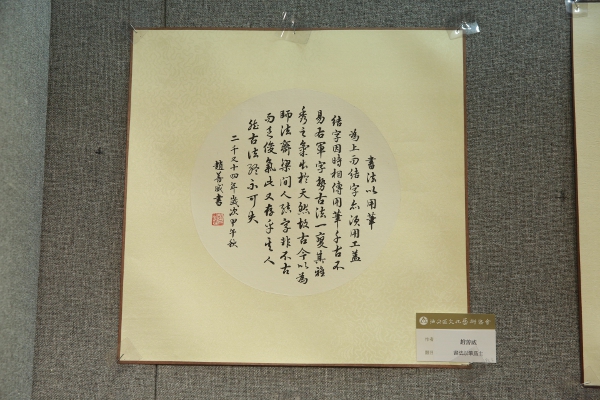 書法以用筆
為上而結字亦須用工蓋
結字因時相傳用筆千古不
易右軍字勢古法一變其雄
秀之氣出於天然故古今以為
師法齊梁間人結字非不古
而乏俊氣此又存乎其人
然古法終不可失
二千又十四年歲次甲午秋
趙善威書
趙善威